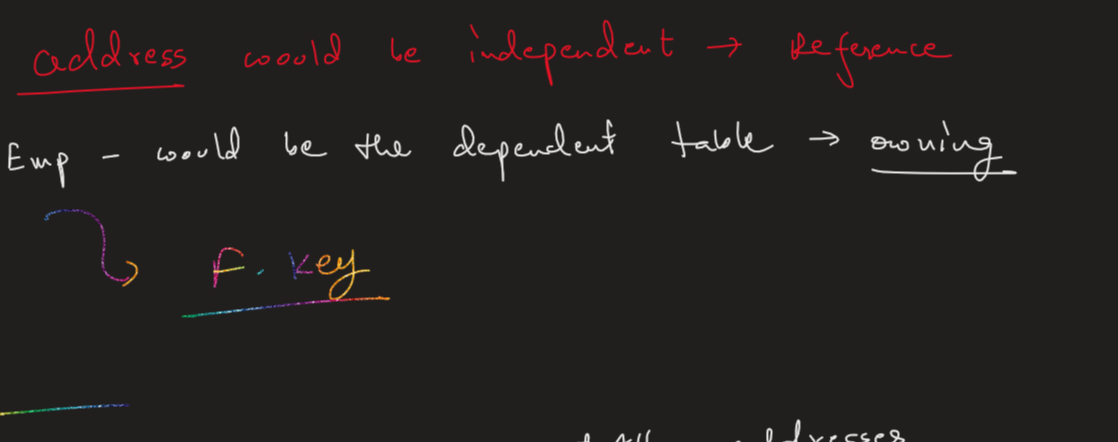 address would be independent → Reference
Emp - would be the dependent table → owning
F. key
addresses